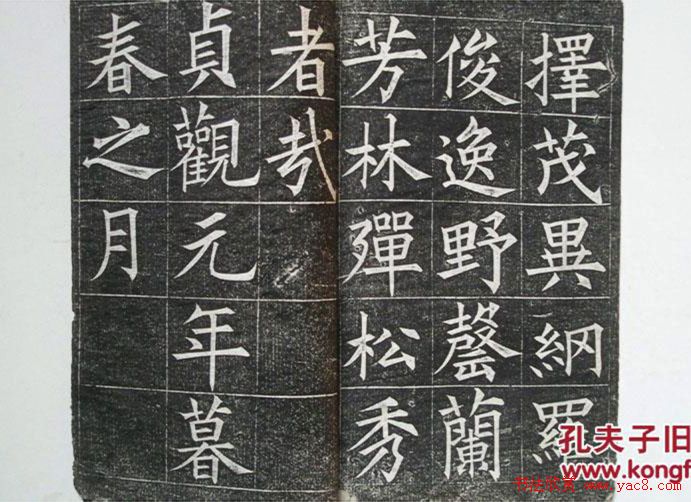 擇茂異網羅
俊逸野罄蘭
芳林殫松秀
者哉
貞觀元年暮
春之月
孔夫子旧
www.kongf
书法欣赏 www.yac8.com